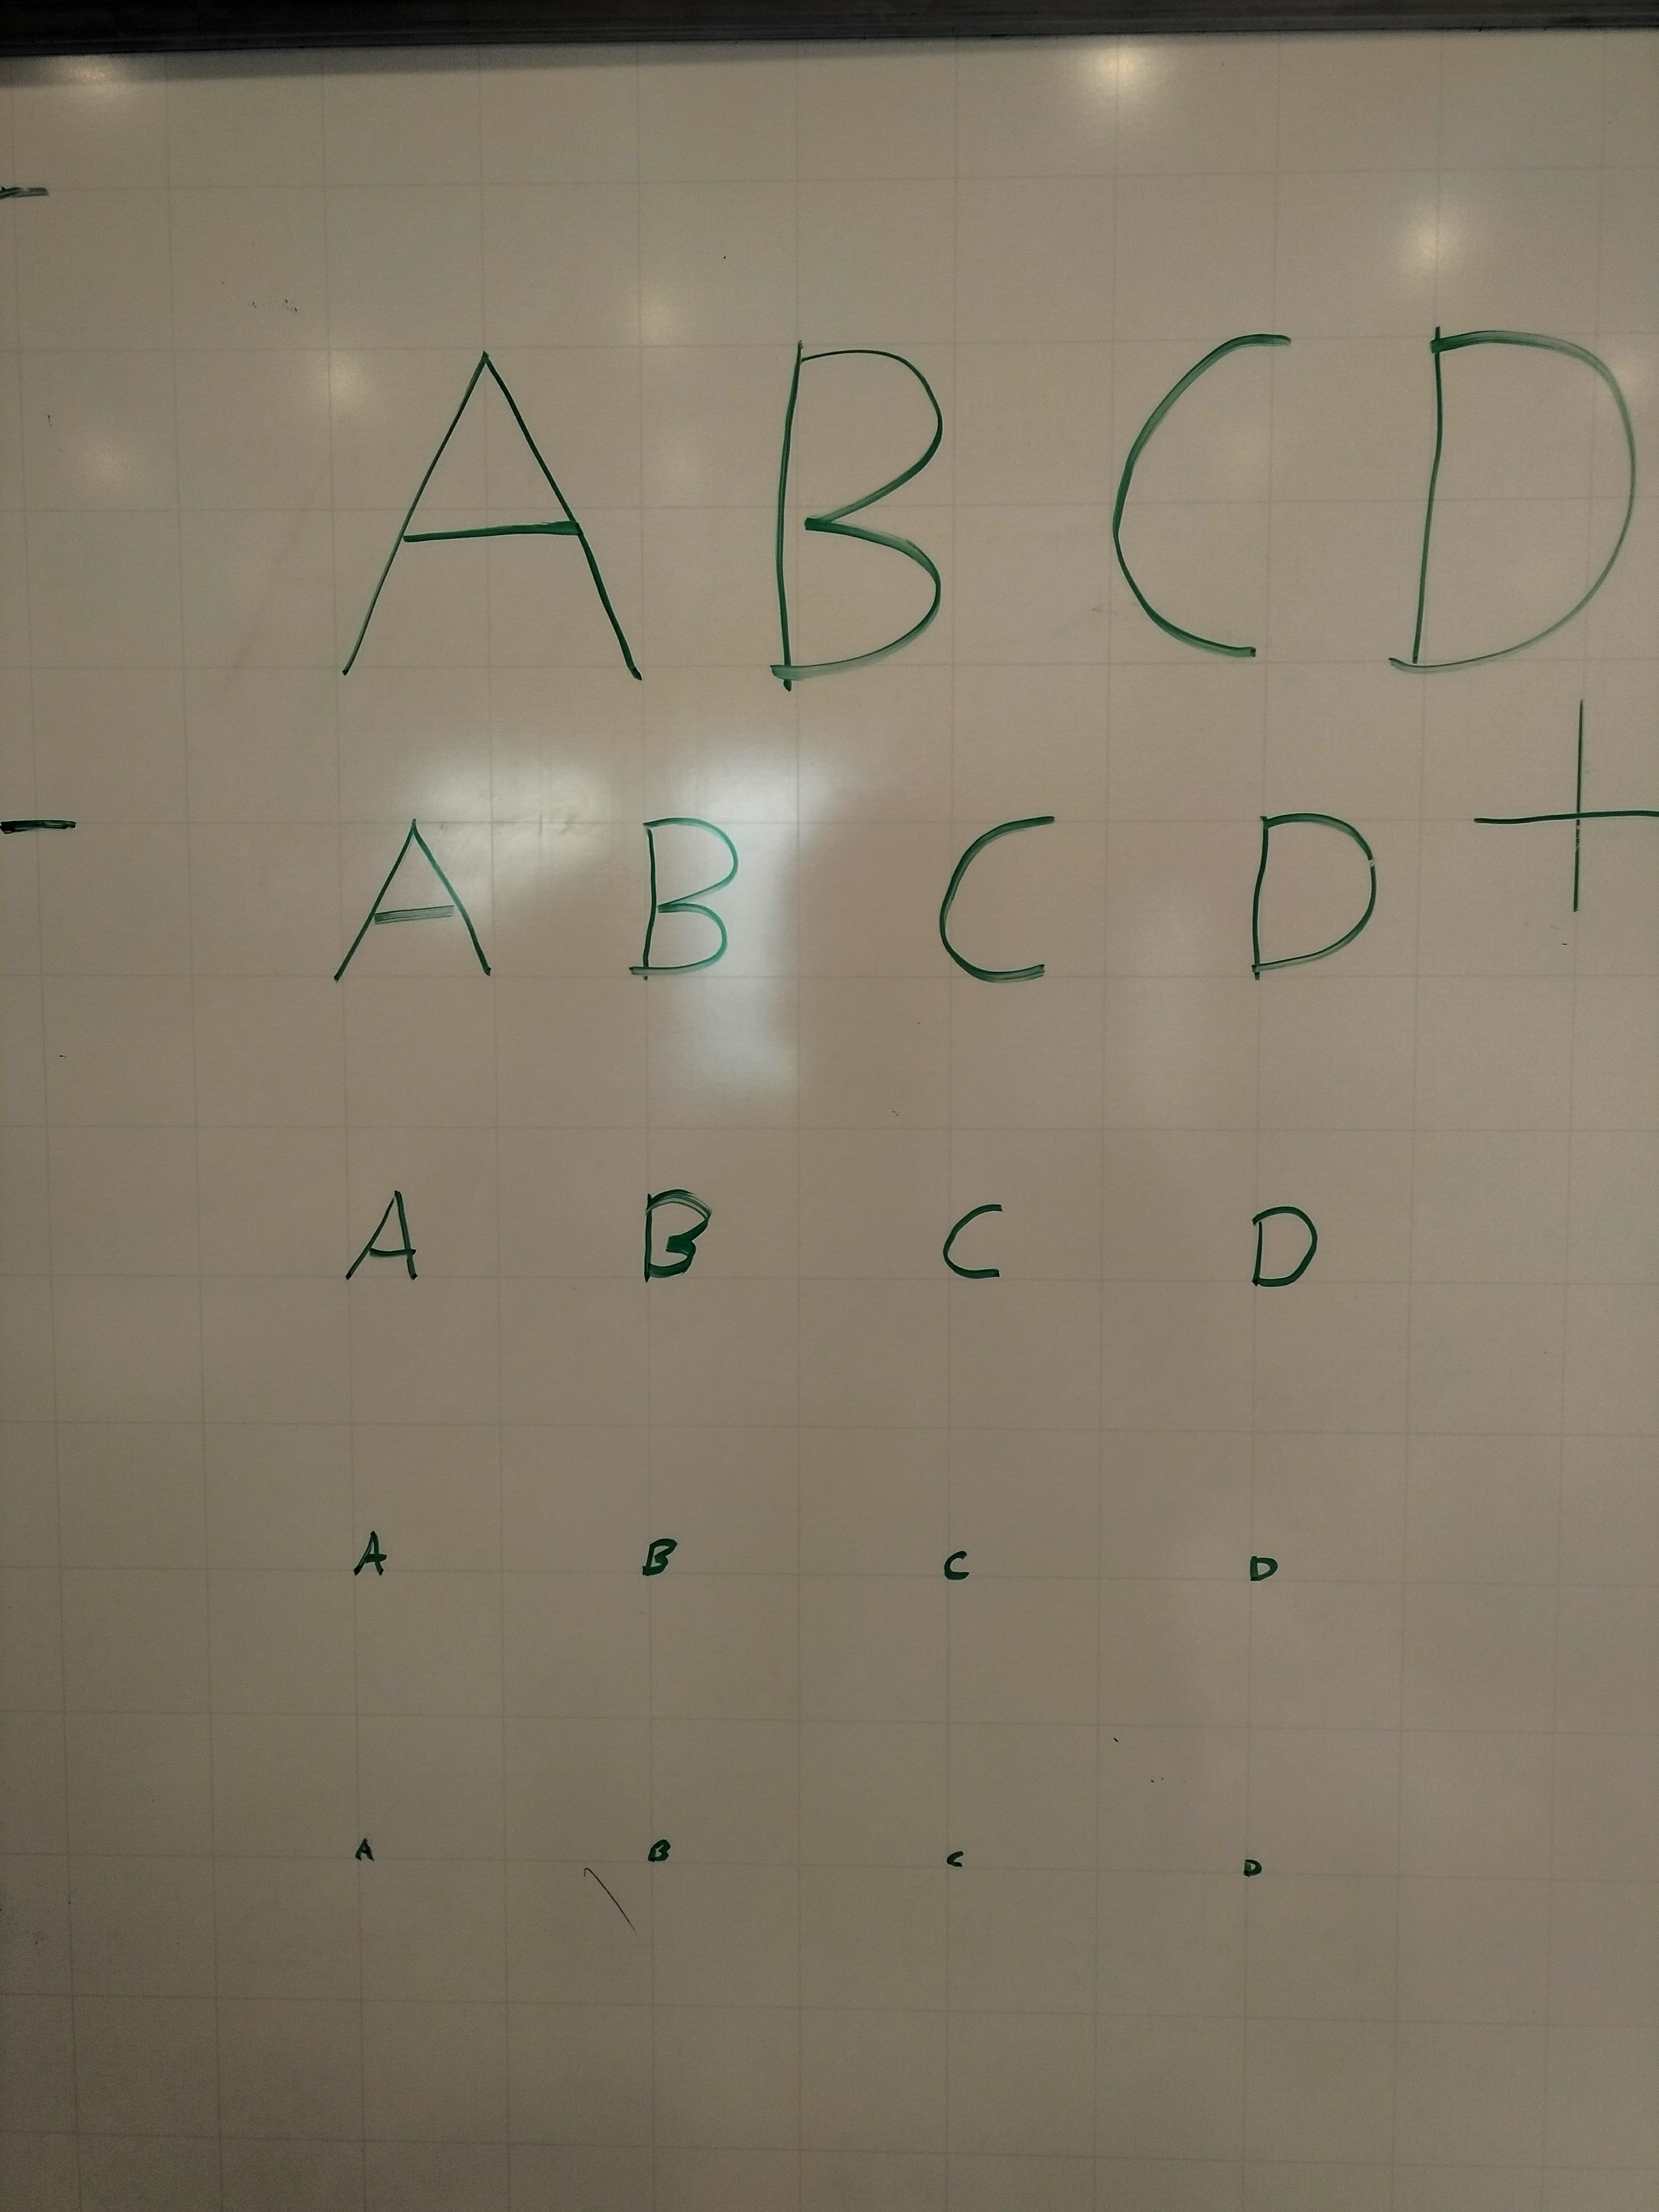 -
A B C D
- A B C D +
A B C D
A B C D
A B C D